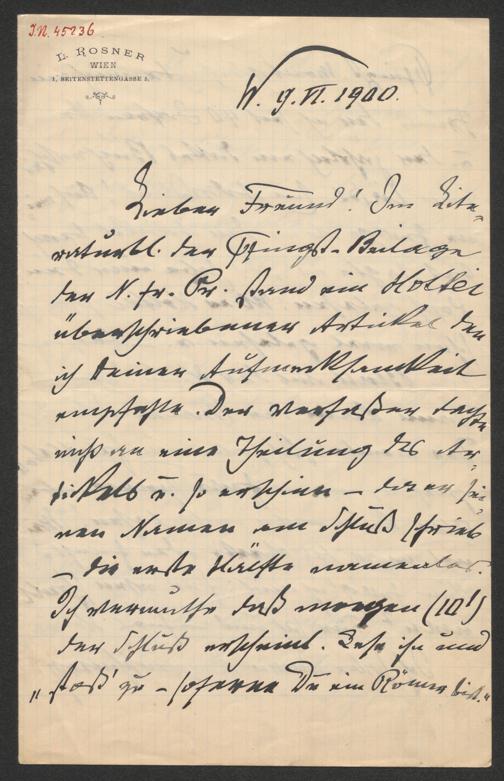 J.N. 45236
L. ROSNER
WIEN
I. SEITENSTETTENGASSE 5.
W. 9.VI.1900.
Lieber Freund! Im Lite-
raturbl. der Pfingst-Beilage
der N. fr. Pr. stand ein Holtei
überschriebener Artikel den
ich Deiner Aufmerksamkeit
empfehle. Der Verfaßer dachte
nicht an eine Theilung des Ar-
tikels u. so erschien – da er sei-
nen Namen am Schluß schrieb
– die erste Hälfte namenlos.
Ich vermuthe daß morgen (10!)
der Schluß erscheint. Lese ihn und
„stoß' zu – soferne Du ein Römer bist."